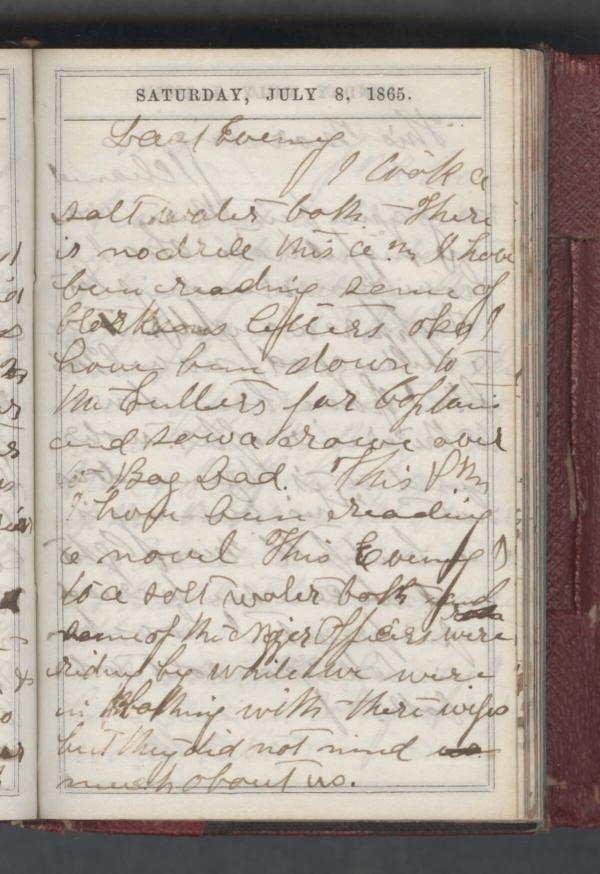 SATURDAY, JULY 8, 1865.
Last Evening
I took a
salt water bath There
is no drele this a m I have
been reading some of
Clarksons letters oks I
have been down to
Mr Sullers for Captain
and saw a crowe over
to Bag Dad. This P M
I have been reading
a novel This Evening I
to a solt water bath and
some of the Niger Officers were
riding by while we were
in Bathing with there wifes
but they did not mind
much about us.